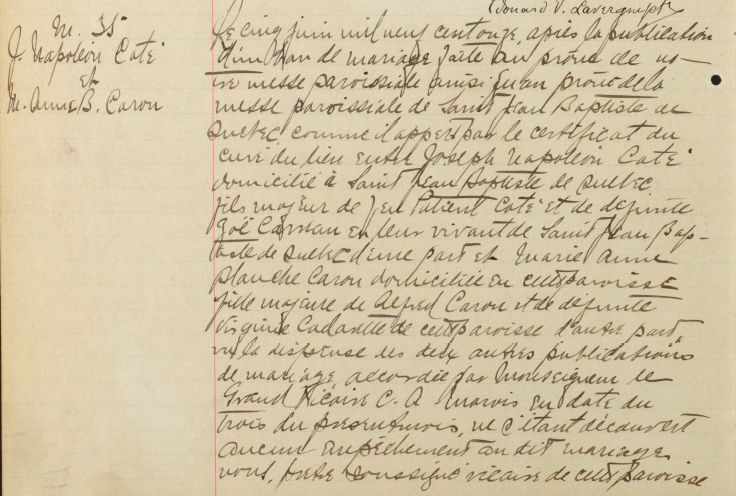 Edouard V. Lavergne ptre
M. 35
J. Napoléon Coté
et
M. Anne B. Caron
Le cinq juin mil neuf cent onze, après la publication
d'un ban de mariage faite au prône de no-
tre messe paroissiale ainsi qu'au prône de la
messe paroissiale de Saint Jean Baptiste de
Québec, comme il appert par le certificat du
curé du lieu entre Joseph Napoléon Coté
domicilié à Saint Jean Baptiste de Québec
fils majeur de feu Patient Coté et de défunte
Zoé en leur vivant de Saint Jean Bap-
tiste de Québec d'une part et Marie Anne
Blanche Caron domiciliée en cette paroisse
fille majeure de Alfred Caron et de défunte
Virginie de cette paroisse d'autre part,
vu la dispense des deux autres publications
de mariage accordée par Monseigneur le
Grand Vicaire C. A. Marois en date du
trois du présent mois, ne s'étant découvert
aucun empêchement au dit mariage
nous, prêtre soussigné vicaire de cette paroisse